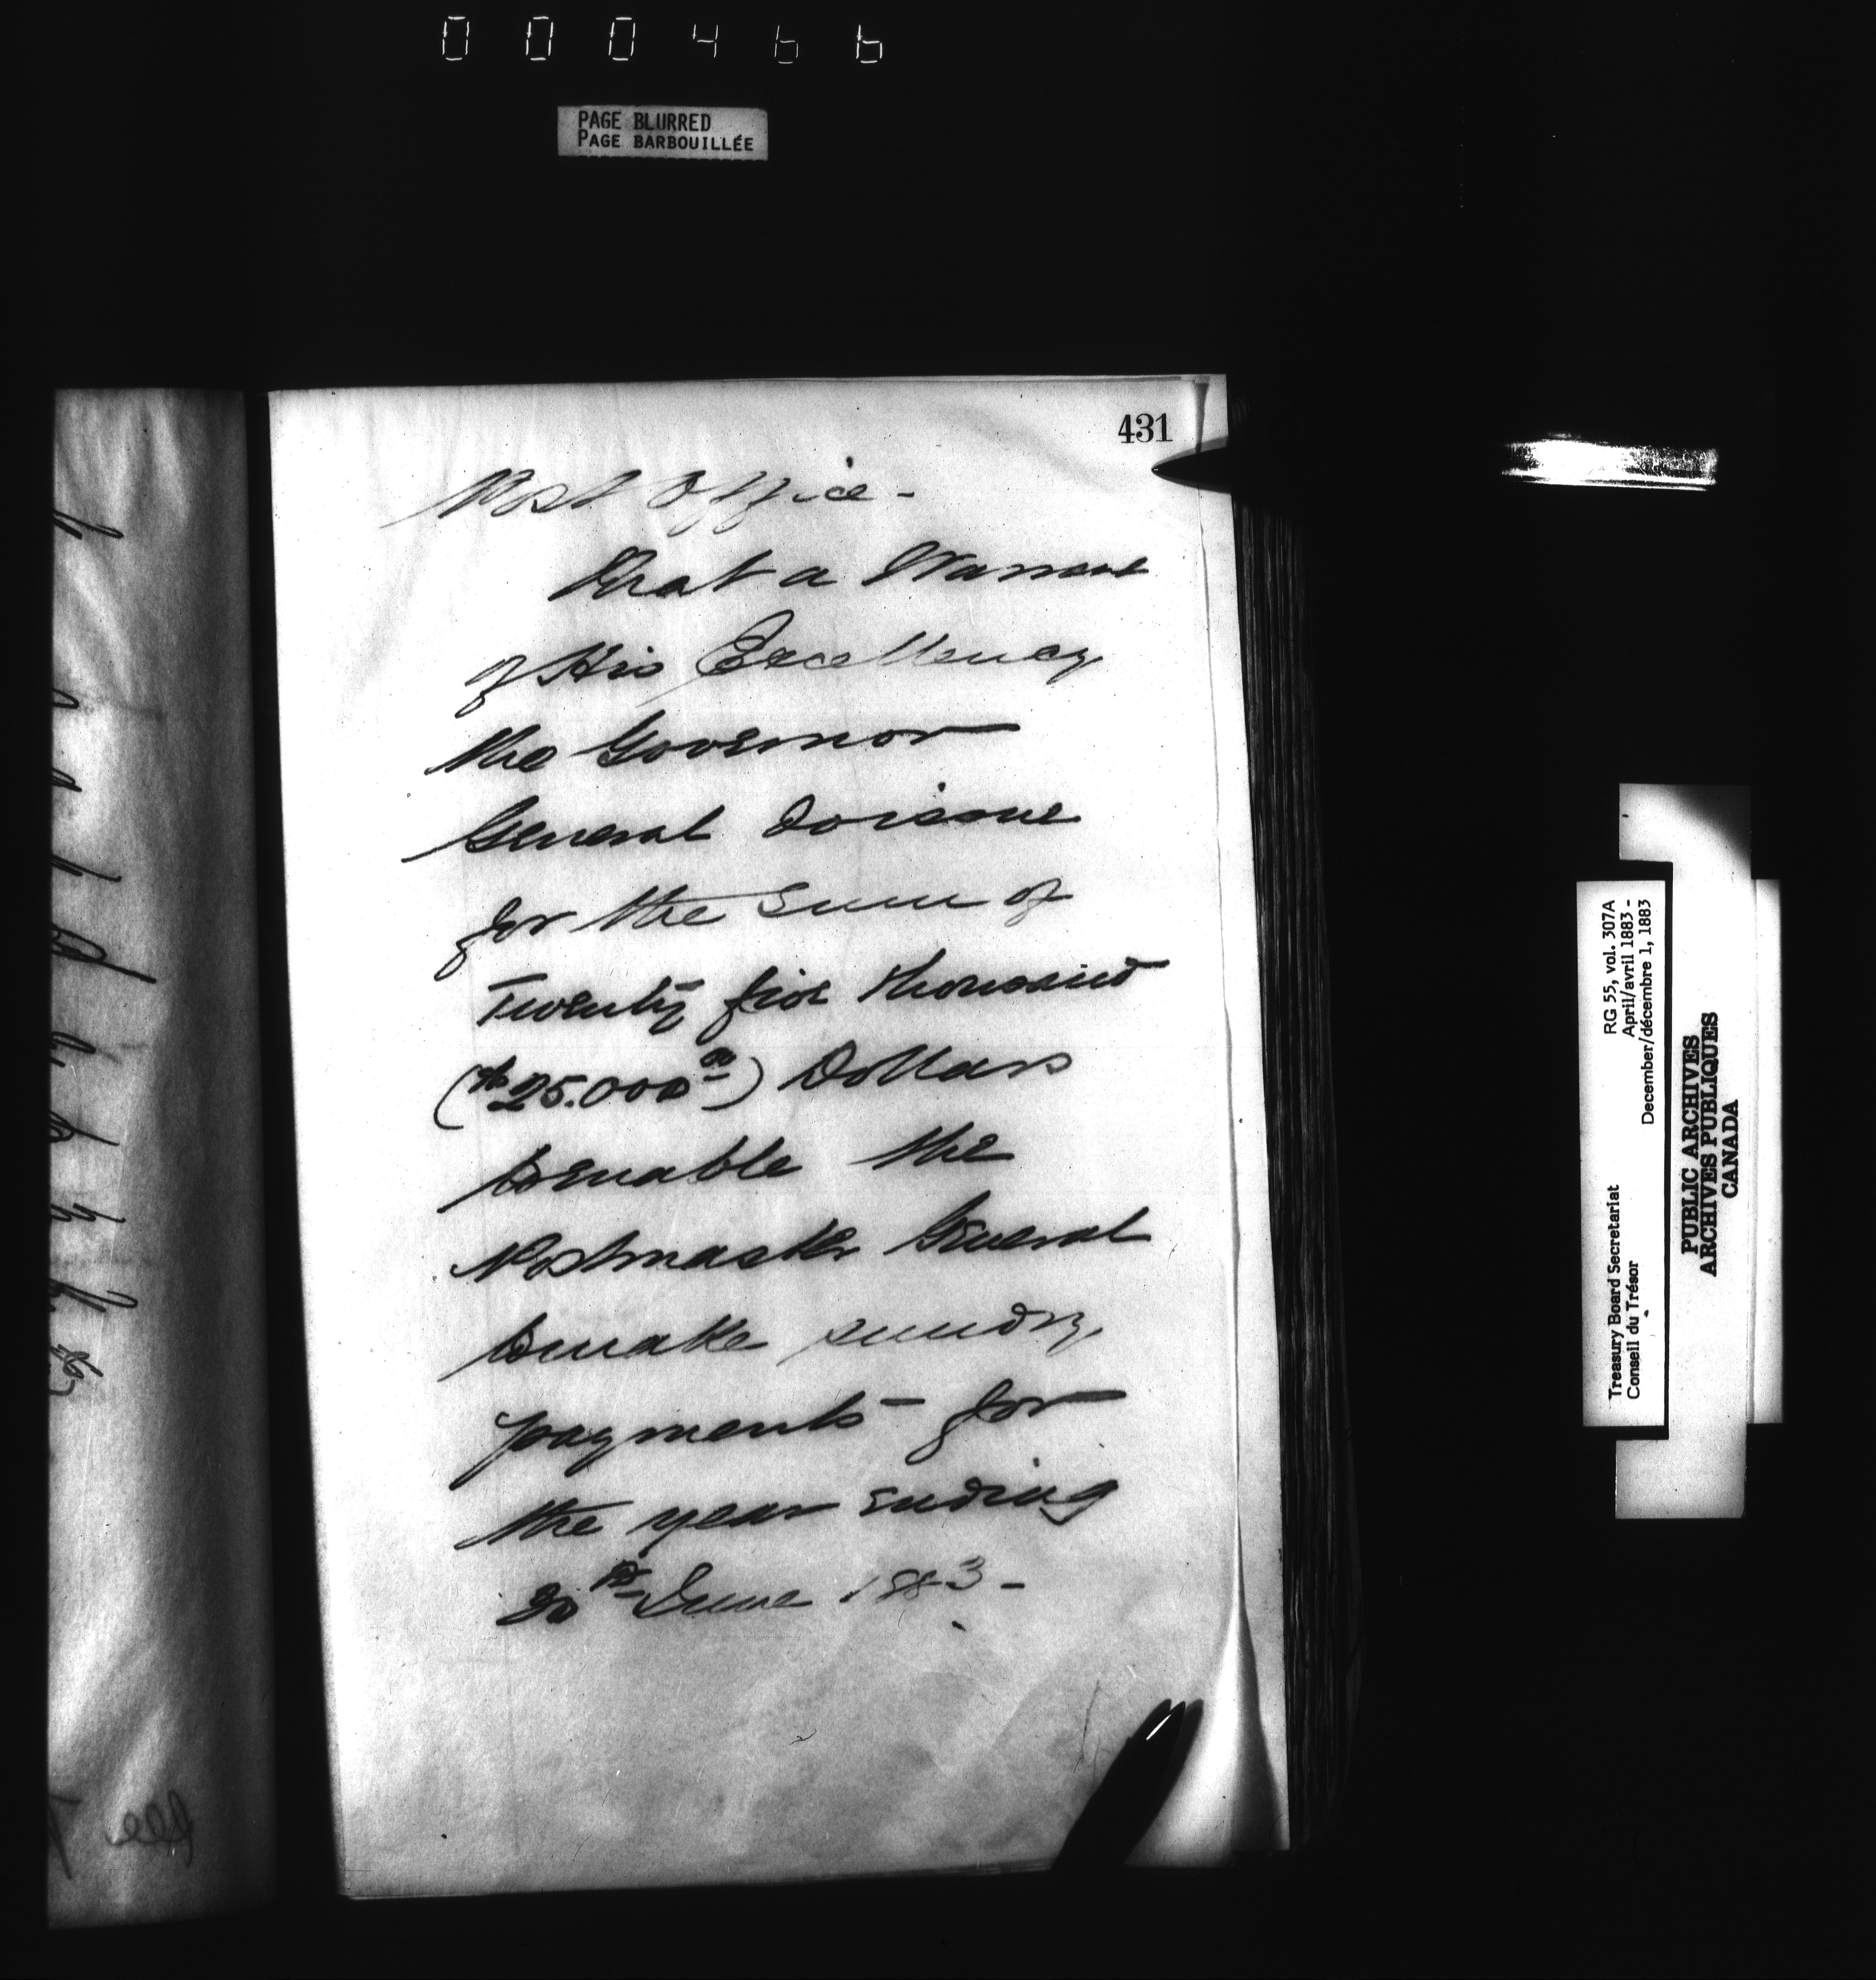 000466
PAGE BLURRED
PAGE BARBOUILLÉE
431
Post Office -
That a Warrant
of His Excellency
the Governor
General do issue
for the sum of
Twenty five thousand
($25.000 00) Dollars
to enable the
Postmaster General
to make sundry
payments for
the year ending
30th June 1883 -
Treasury Board Secretariat
Conseil du Trésor
RG 55, vol. 307A
April/avril 1883 -
December/décembre 1, 1883
PUBLIC ARCHIVES
ARCHIVES PUBLIQUES
CANADA